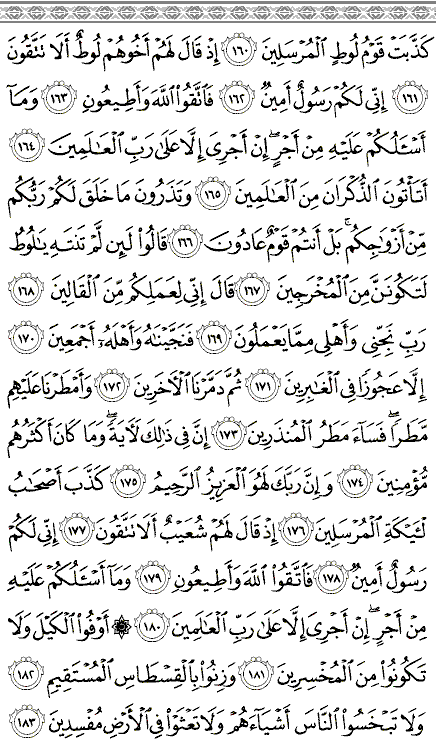 كَذَّبَتْ قَوْمُ لُوطٍ الْمُرْسَلِينَ ١٦٠ إِذْ قَالَ لَهُمْ أَخُوهُمْ لُوطٌ أَلَا تَتَّقُونَ
١٦١ إِنِّي لَكُمْ رَسُولٌ أَمِينٌ ١٦٢ فَاتَّقُوا اللَّهَ وَأَطِيعُونِ ١٦٣ وَمَا
أَسْـَٔلُكُمْ عَلَيْهِ مِنْ أَجْرٍ ۖ إِنْ أَجْرِيَ إِلَّا عَلَىٰ رَبِّ الْعَالَمِينَ ١٦٤
أَتَأْتُونَ الذُّكْرَانَ مِنَ الْعَالَمِينَ ١٦٥ وَتَذَرُونَ مَا خَلَقَ لَكُمْ رَبُّكُم
مِّنْ أَزْوَاجِكُم ۚ بَلْ أَنتُمْ قَوْمٌ عَادُونَ ١٦٦ قَالُوا لَئِن لَّمْ تَنتَهِ يَالُوطُ
لَتَكُونَنَّ مِنَ الْمُخْرَجِينَ ١٦٧ قَالَ إِنِّي لِعَمَلِكُم مِّنَ الْقَالِينَ ١٦٨
رَبِّ نَجِّنِي وَأَهْلِي مِمَّا يَعْمَلُونَ ١٦٩ فَنَجَّيْنَاهُ وَأَهْلَهُ أَجْمَعِينَ ١٧٠
إِلَّا عَجُوزًا فِي الْغَابِرِينَ ١٧١ ثُمَّ دَمَّرْنَا الْآخَرِينَ ١٧٢ وَأَمْطَرْنَا عَلَيْهِم
مَّطَرًا ۖ فَسَاءَ مَطَرُ الْمُنذَرِينَ ١٧٣ إِنَّ فِي ذَٰلِكَ لَآيَةً ۖ وَمَا كَانَ أَكْثَرُهُم
مُّؤْمِنِينَ ١٧٤ وَإِنَّ رَبَّكَ لَهُوَ الْعَزِيزُ الرَّحِيمُ ١٧٥ كَذَّبَ أَصْحَابُ
لْـَٔيْكَةِ الْمُرْسَلِينَ ١٧٦ إِذْ قَالَ لَهُمْ شُعَيْبٌ أَلَا تَتَّقُونَ ١٧٧ إِنِّي لَكُمْ
رَسُولٌ أَمِينٌ ١٧٨ فَاتَّقُوا اللَّهَ وَأَطِيعُونِ ١٧٩ وَمَا أَسْـَٔلُكُمْ عَلَيْهِ
مِنْ أَجْرٍ ۖ إِنْ أَجْرِيَ إِلَّا عَلَىٰ رَبِّ الْعَالَمِينَ ١٨٠ ۞ أَوْفُوا الْكَيْلَ وَلَا
تَكُونُوا مِنَ الْمُخْسِرِينَ ١٨١ وَزِنُوا بِالْقِسْطَاسِ الْمُسْتَقِيمِ ١٨٢
وَلَا تَبْخَسُوا النَّاسَ أَشْيَاءَهُمْ وَلَا تَعْثَوْا فِي الْأَرْضِ مُفْسِدِينَ ١٨٣